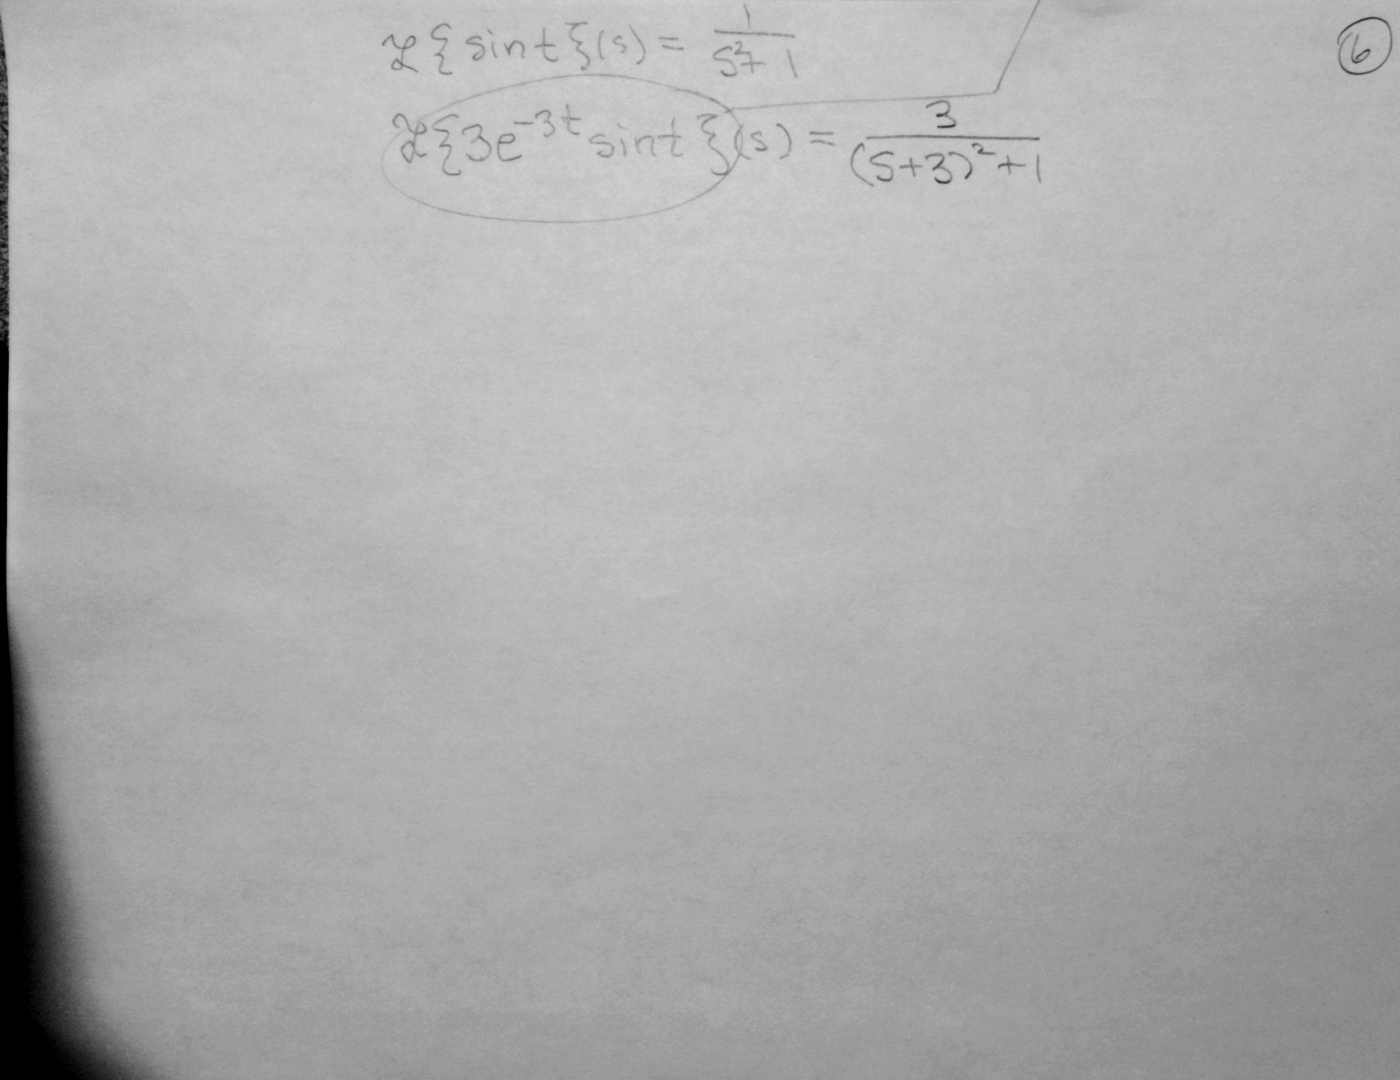 ℒ{sint}(s) = 1/(s²+1)
⑥
ℒ{3e^(-3t) sint}(s) = 3/((s+3)²+1)